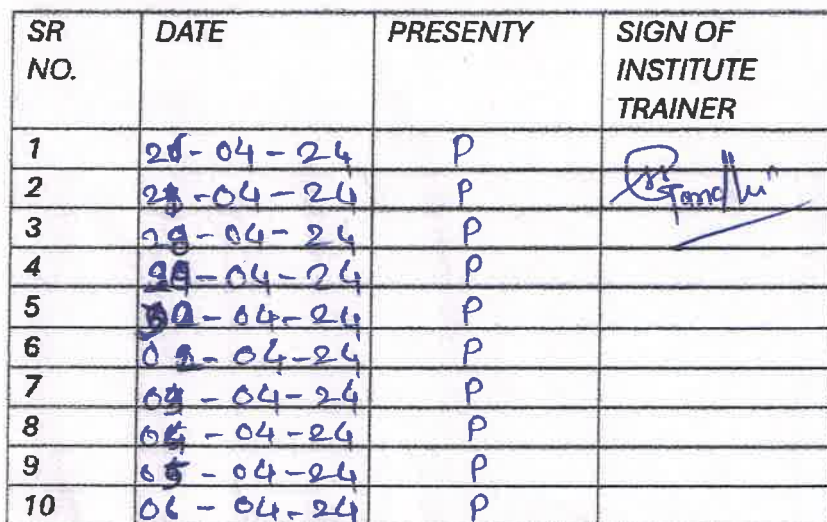 SR NO. DATE PRESENTY SIGN OF INSTITUTE TRAINER
1 -04-24 P
2 -04-24 P
3 -04-24 P
4 -04-24 P
5 -04-24 P
6 -04-24 P
7 -04-24 P
8 -04-24 P
9 05-04-24 P
10 06-04-24 P